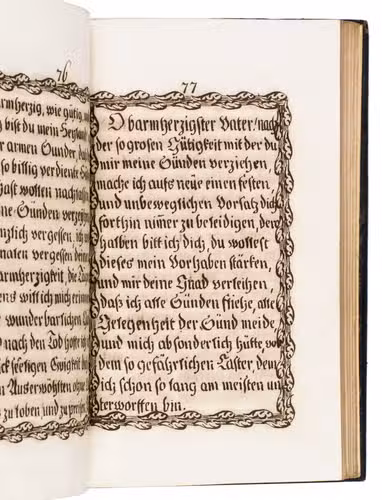 76
wie gütig,
bist du mein Heyland
armen Sünder,
so billig verdiente
wollen
Sünden
vergessen, ich
vergessen
die
will ich mich
wunderbarlichen
nach den Tod hoffe ich
seeligen Ewigkeit
Auserwöhlten
zu loben und zu
77
O barmherzigster Vater/nach
der so grosen Gütigkeit mit der du
mir meine Sünden verziehen,
mache ich aufs neüe einen festen,
und unbeweglichen Vorsatz dich
forthin nim̄er zu beleidigen, der
halben bitt ich dich, du wollest
dieses mein Vorhaben stärken,
und mir deine Gnad verleihen,
daß ich alle Sünden fliehe, alle
Gelegenheit der Sünd meide,
und mich absonderlich hütte, vor
dem so gefährlichen Laster, dem
ich schon so lang am meisten un
terworffen bin.